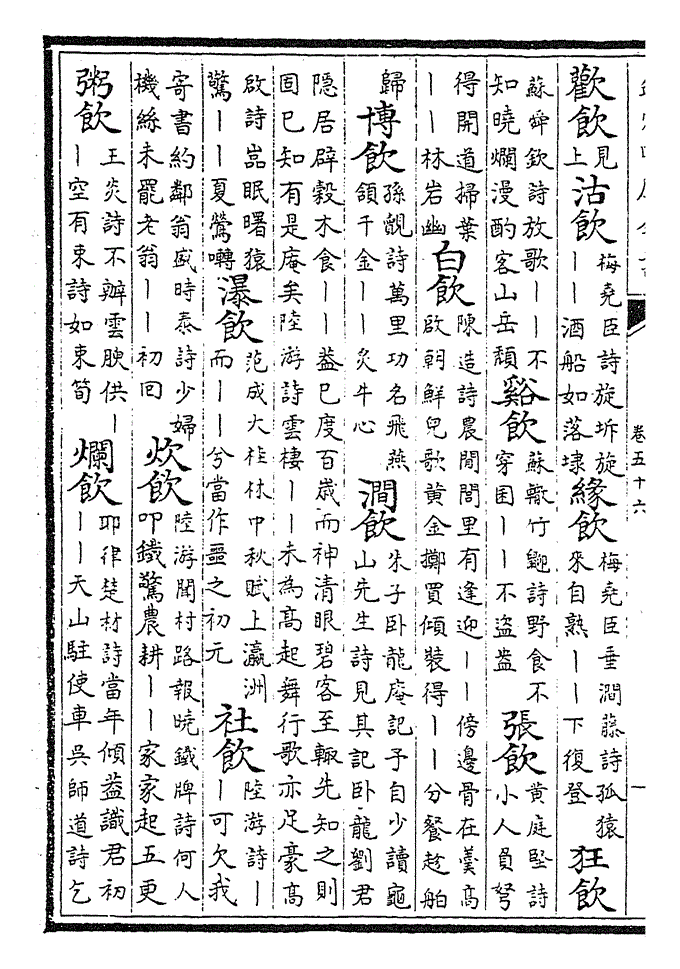 卷五十六
一
歡飲見上沽飲梅堯臣詩旋坼旋——酒船如落埭緣飲梅堯臣垂澗藤詩孤猿來自熟——下復登狂飲
蘇舜欽詩放歌——不知曉爛漫酌客山岳頹谿飲蘇轍竹䶉詩野食不穿囷——不盜盎張飲黃庭堅詩小人負弩
得開道掃葉——林岩幽白飲陳造詩農閒閭里有逢迎——傍邊骨在羹高啟朝鮮兒歌黃金擲買傾裝得——分餐趁舶
歸博飲孫覿詩萬里功名飛燕頷千金——炙牛心澗飲朱子卧龍庵記予自少讀龜山先生詩見其記卧龍劉君
隱居辟穀木食——蓋已度百歲而神清眼碧客至輒先知之則固已知有是庵矣陸游詩雲棲——未為高起舞行歌亦足豪高
啟詩嵓眠曙猿驚——夏鶯囀瀑飲范成大桂林中秋賦上瀛洲而——兮當作噩之初元社飲陸游詩——可欠我
寄書約鄰翁戚時泰詩少婦機絲未罷老翁——初回炊飲陸游聞村路報曉鐵牌詩何人叩鐵驚農耕——家家起五更
粥飲王炎詩不辦雲腴供——空有束詩如束筍爛飲耶律楚材詩當年傾蓋識君初——天山駐使車吳師道詩乞